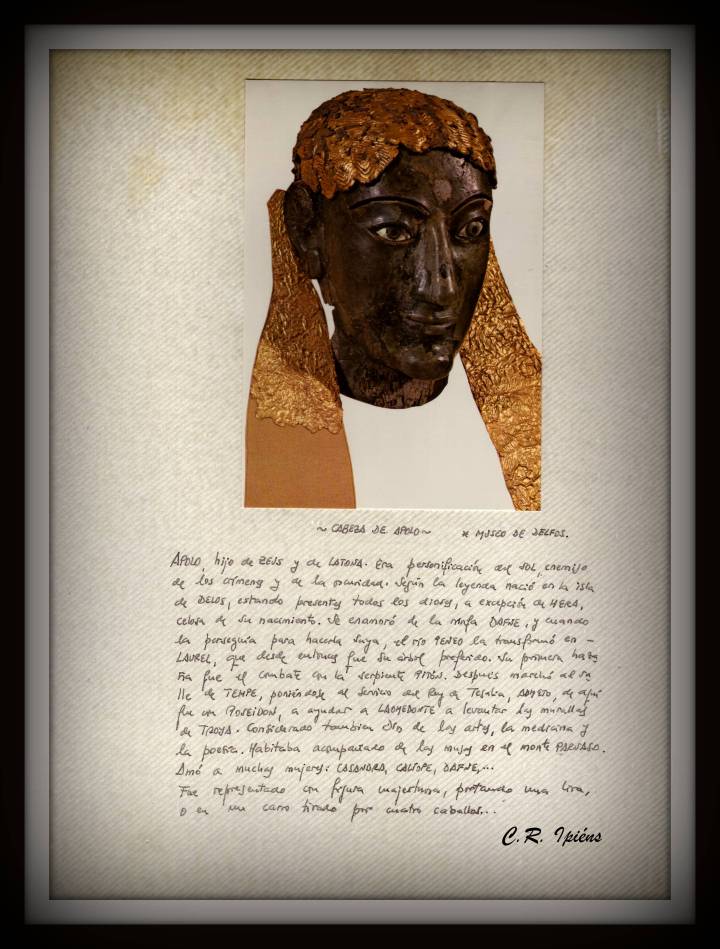 ~ CABEZA DE APOLO ~ * MUSEO DE DELFOS.
APOLO, hijo de ZEUS y de LATONA. Era personificación del SOL, enemigo
de los crímenes y de la oscuridad. Según la leyenda nació en la isla
de DELOS, estando presentes todos los dioses, a excepción de HERA,
celosa de su nacimiento. Se enamoró de la ninfa DAFNE, y cuando
la perseguía para hacerla suya, el río PENEO la transformó en -
LAUREL, que desde entonces fue su árbol preferido. Su primera haza
ña fue el combate con la serpiente PITÓN. Después marchó al va
lle de TEMPE, poniéndose al servicio del Rey de Tesalia, ADMETO, de aquí
fue con POSEIDON, a ayudar a LAOMEDONTE a levantar las murallas
de TROYA. Considerado también Dios de las artes, la medicina y
la poesía. Habitaba acompañado de las musas en el monte PARNASO.
Amó a muchas mujeres: CASANDRA, CALIOPE, DAFNE,...
Fue representado con figura majestuosa, portando una lira,
o en un carro tirado por cuatro caballos...
C.R. Ipiéns